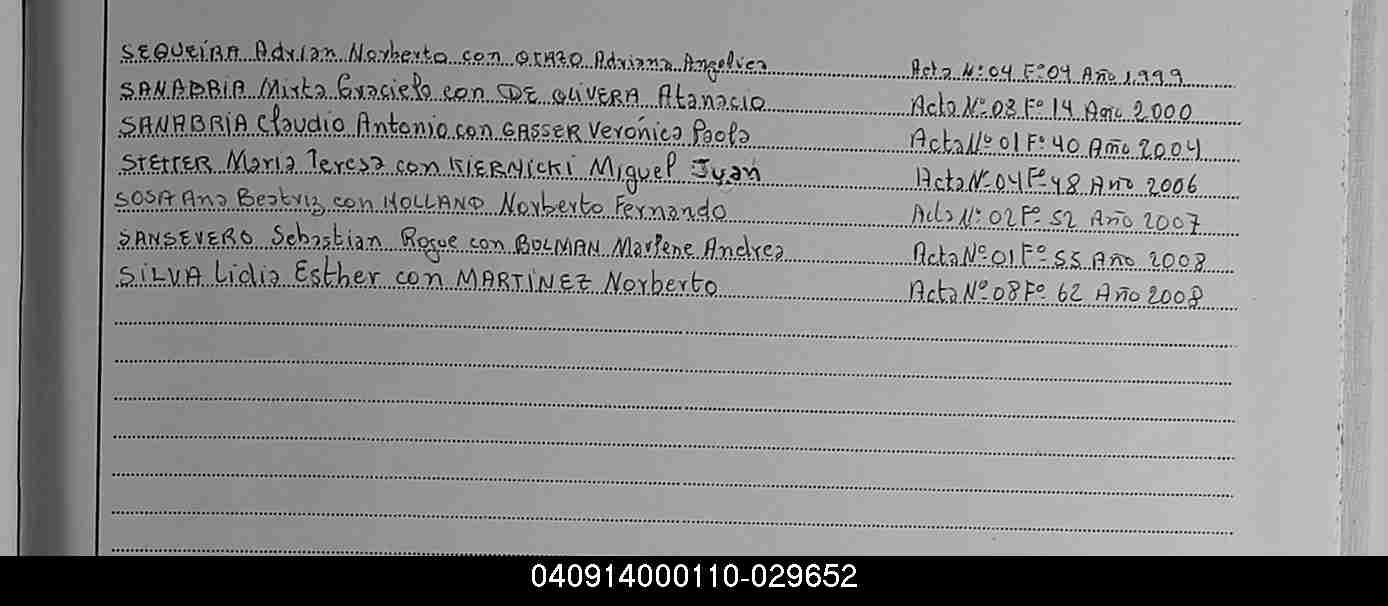 SEQUEIRA Adrian Norberto con OTAZO Adriana Angelica Acta Nº 04 Fº 04 Año 1.999
SANABRIA Mirta Graciela con DE OLIVERA Atanacio Acta Nº 03 Fº 14 Año 2000
SANABRIA Claudio Antonio con GASSER Verónica Paola Acta Nº 01 Fº 40 Año 2004
STETTER Maria Teresa con KIERNICKI Miguel Juan Acta Nº 04 Fº 48 Año 2006
SOSA Ana Beatriz con HOLLAND Norberto Fernando Acta Nº 02 Fº 52 Año 2007
SANSEVERO Sebastian Roque con BOLMAN Marlene Andrea Acta Nº 01 Fº 55 Año 2008
SILVA Lidia Esther con MARTINEZ Norberto Acta Nº 08 Fº 62 Año 2008
040914000110-029652